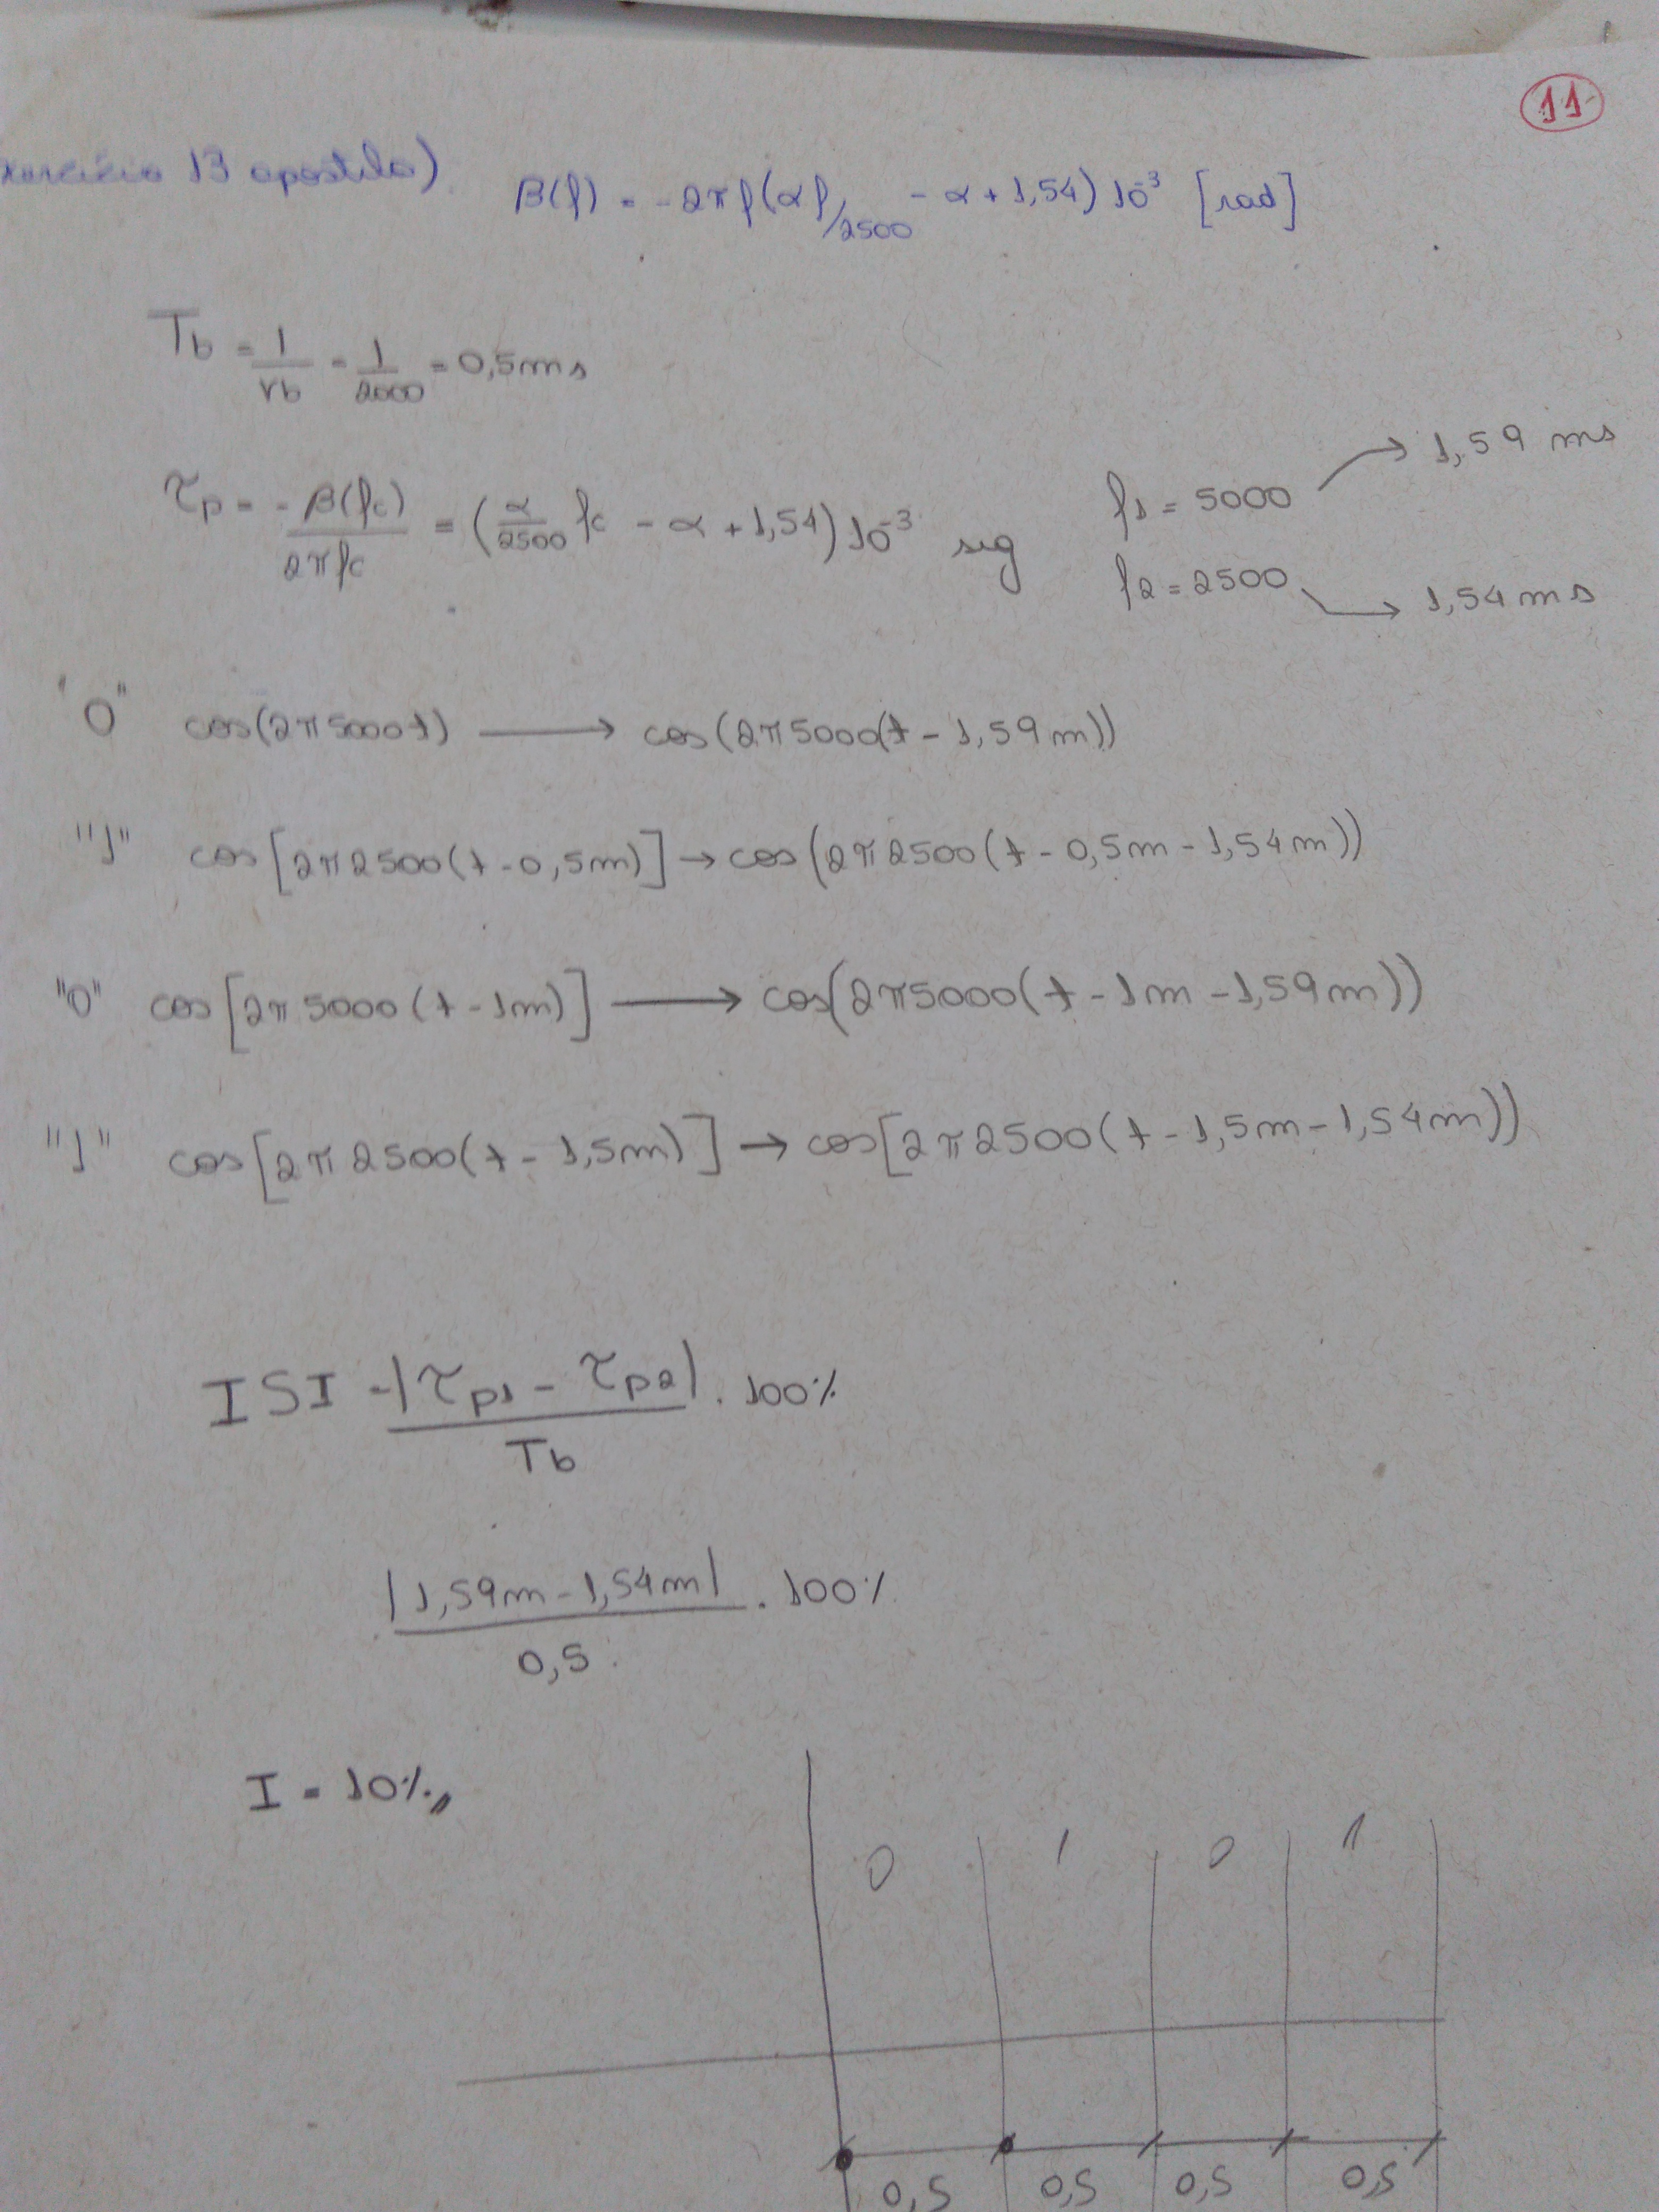 11
13 apostila) β(f) = -2πf(αf/2500 - α + 1,54) 10^-3 [rad]
Tb = 1/rb = 1/2000 = 0,5ms
τp = -β(fc)/2πfc = (α/2500 fc - α + 1,54) 10^-3 seg
f1 = 5000 → 1,59 ms
f2 = 2500 → 1,54 ms
"0" cos(2π5000t) → cos(2π5000(t - 1,59m))
"1" cos[2π2500(t - 0,5m)] → cos(2π2500(t - 0,5m - 1,54m))
"0" cos[2π5000(t - 1m)] → cos(2π5000(t - 1m - 1,59m))
"1" cos[2π2500(t - 1,5m)] → cos[2π2500(t - 1,5m - 1,54m))
ISI = |τp1 - τp2|/Tb . 100%
|1,59m - 1,54m|/0,5 . 100%
I = 10%,,
0 1 0 1
0,5 0,5 0,5 0,5